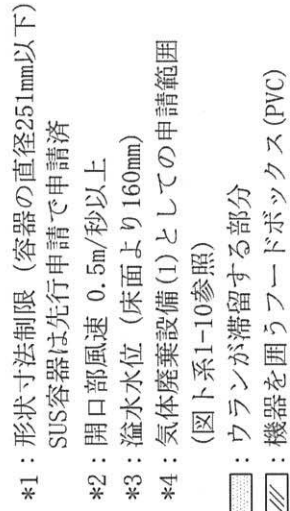 *1：形状寸法制限（容器の直径251mm以下）
SUS容器は先行申請で申請済
*2：開口部風速 0.5m/秒以上
*3：溢水水位（床面より160mm）
*4：気体廃棄設備(1)としての申請範囲
(図ト系1-10参照)
：ウランが滞留する部分
：機器を囲うフードボックス(PVC)